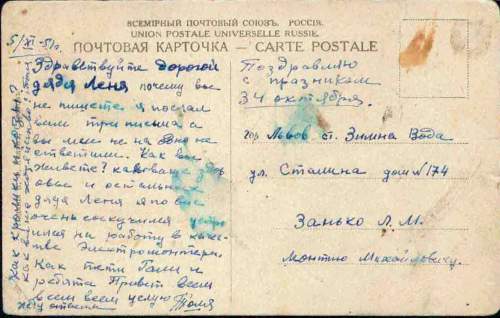 ВСЕМІРНЫЙ ПОЧТОВЫЙ СОЮЗЪ. РОССІЯ.
UNION POSTALE UNIVERSELLE RUSSIE.
ПОЧТОВАЯ КАРТОЧКА — CARTE POSTALE
5/XI-51г.
Здравствуйте дорогой
дядя Леня почему вы
не пишете я послал
вам три письма а
вы мне не на одно не
ответили. Как вы
живете? как ваше здор
овье и остальн
дядя Леня я по вас
очень соскучился устро
ился на работу в каче-
стве Электромонтера.
Как тетя Галя и
ребята Привет всем
всем всем целую Толя
жду ответа
как кролики
Поздравляю
с празником
34 октября.
гор. Львов ст. Зимна Вода
ул. Сталина дом N 174
Занько Л. М.
Михайловичу.